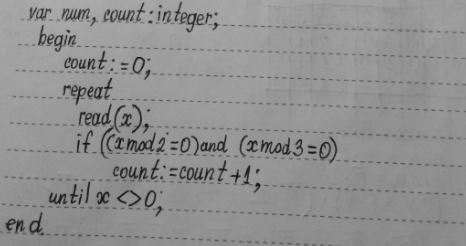 var num, count:integer;
begin
count:=0;
repeat
read(x);
if ((x mod 2=0) and (x mod 3=0)
count:=count+1;
until x <>0;
end.